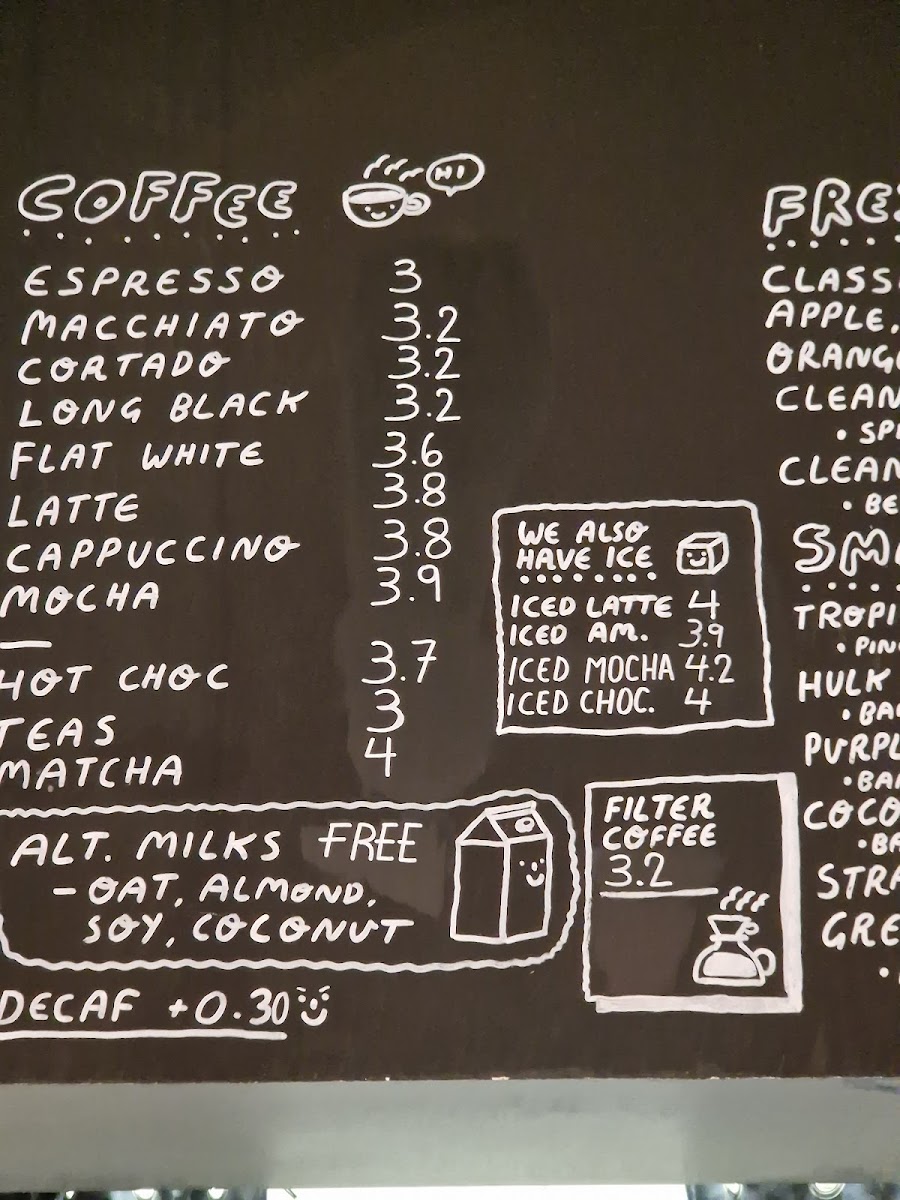 COFFEE
HI
ESPRESSO 3
MACCHIATO 3.2
CORTADO 3.2
LONG BLACK 3.2
FLAT WHITE 3.6
LATTE 3.8
CAPPUCCINO 3.8
MOCHA 3.9
HOT CHOC 3.7
TEAS 3
MATCHA 4
ALT. MILKS FREE
- OAT, ALMOND,
SOY, COCONUT
DECAF +0.30
WE ALSO
HAVE ICE
ICED LATTE 4
ICED AM. 3.9
ICED MOCHA 4.2
ICED CHOC. 4
FILTER
COFFEE
3.2
FRE
CLASS
APPLE,
ORANG
CLEAN
• SP
CLEAN
• BE
SM
TROPI
• PIN
HULK
• BA
PURPL
• BA
COCO
• BA
STRA
GRE